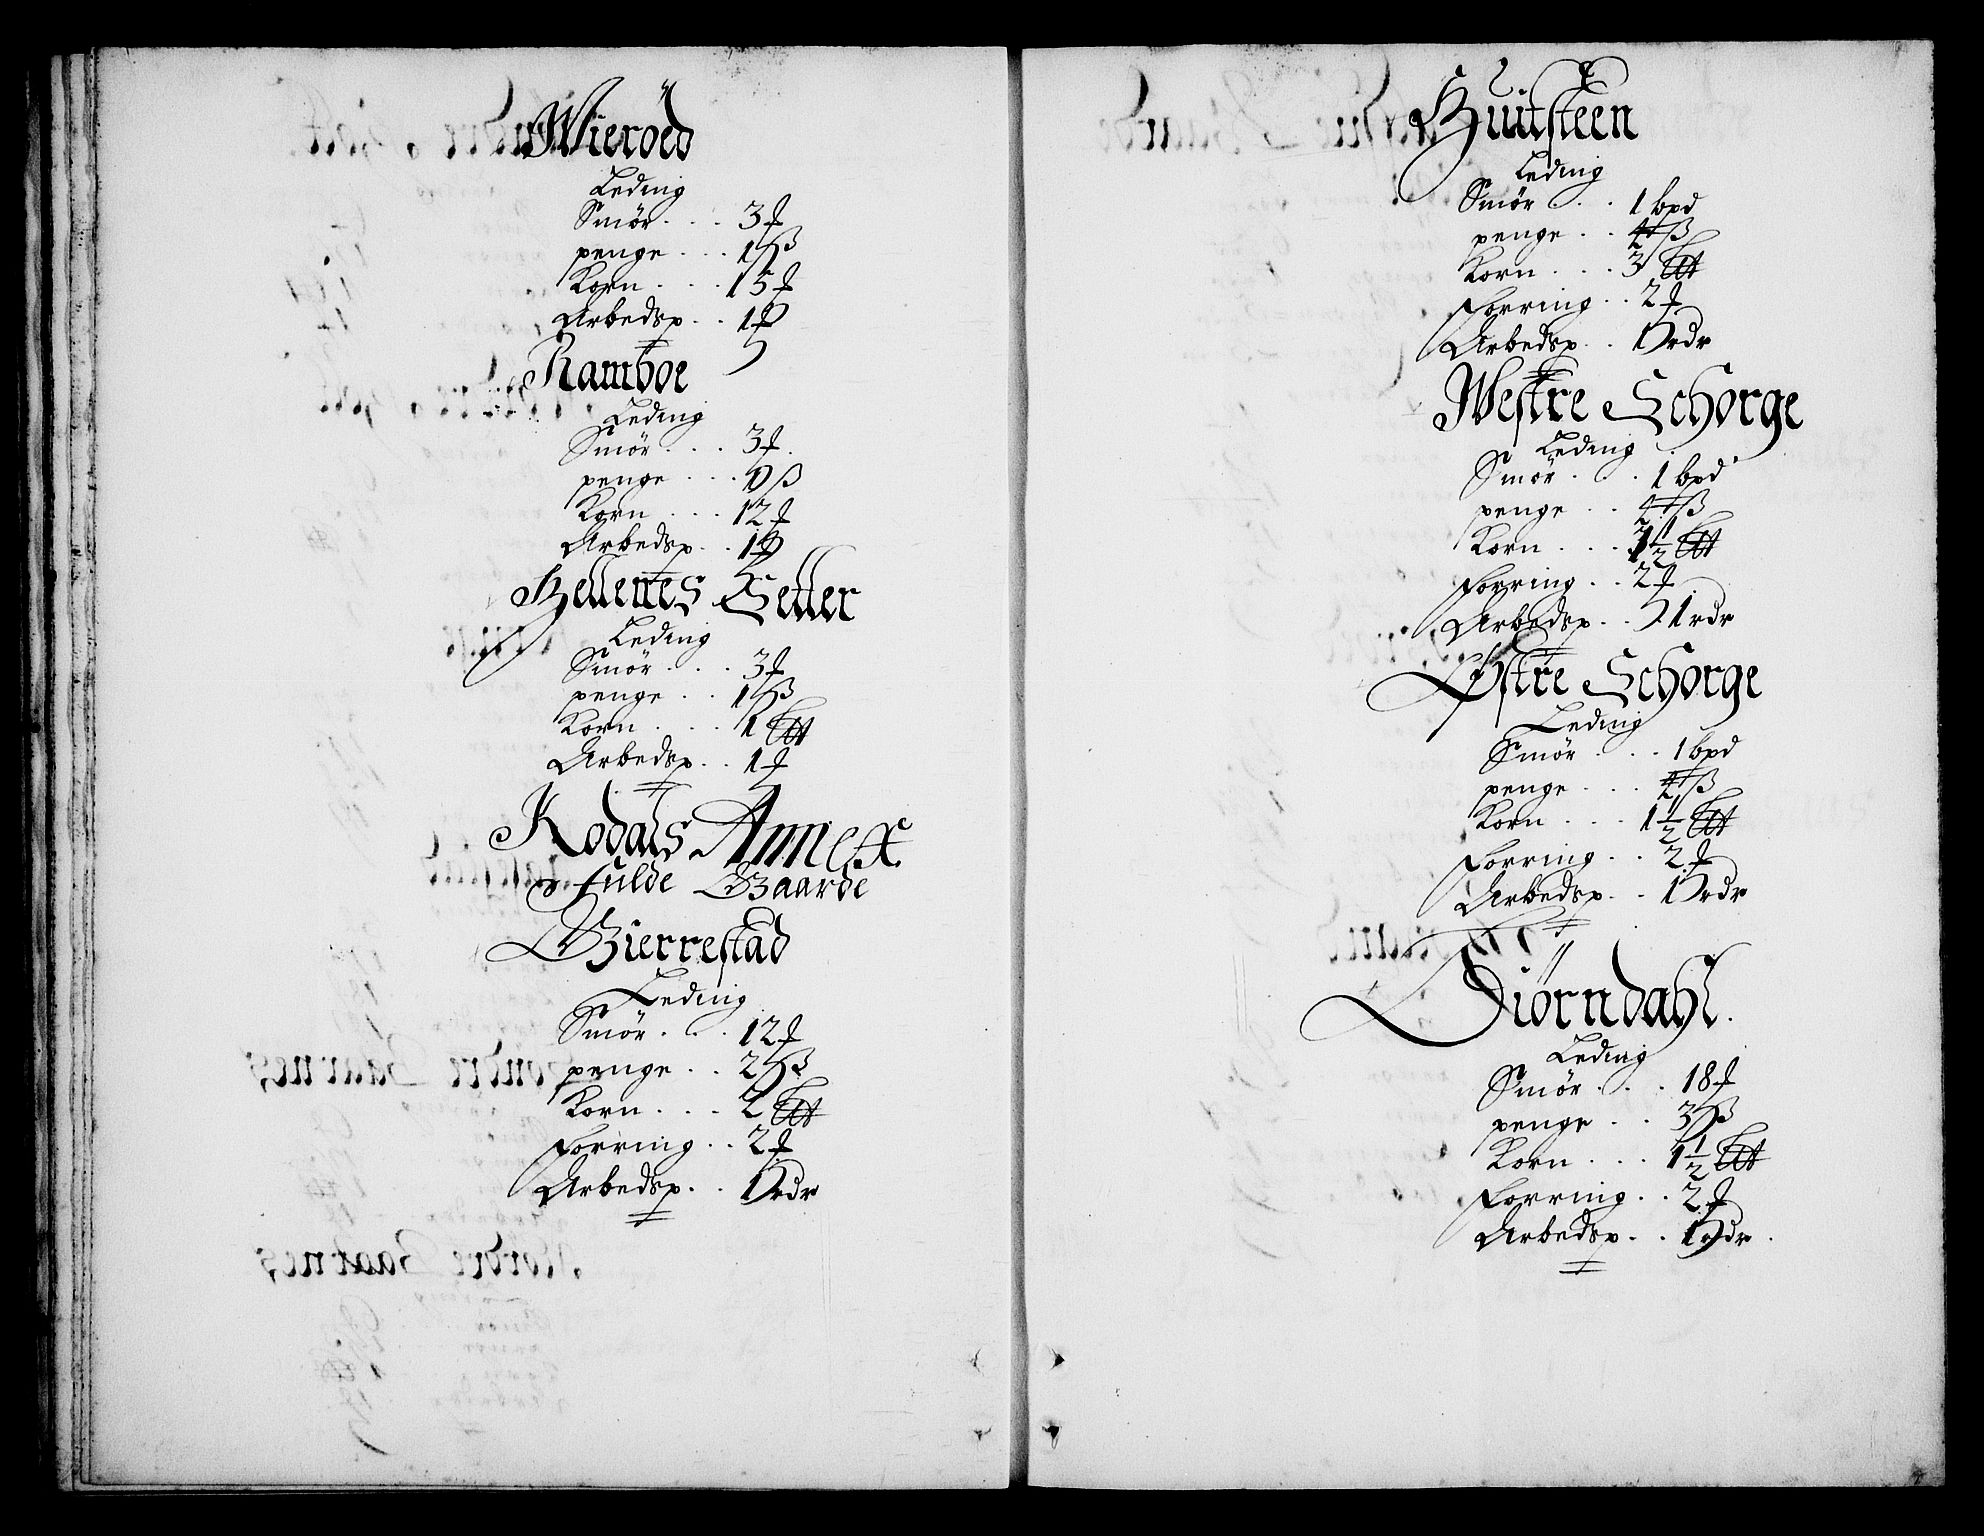 Wieröed
Leding
Smör . . . 3 ₰
penge . . . 1 ß
Korn . . . 15 ₰
Arbedsp. . 1
Ramboe
Leding
Smör . . . 3 ₰
penge . . . ß
Korn . . . 12 ₰
Arbedsp. . 1
Hellenes Setter
Leding
Smör . . . 3 ₰
penge . . 1 ß
Korn . . . 1
Arbedsp. . 1
Kodals Annex
Fulde Gaarde
Gierrestad
Leding
Smör . . . 12 ₰
penge . . 2 ß
Korn . . . 2
Forring . . 2 ₰
Arbedsp. . 1 rdr
Huitsteen
Leding
Smör . . . 1 bpd
penge . . ß
Korn . . . 3
Forring . . 2 ₰
Arbedsp. . 1 rdr
Westre Schorge
Leding
Smör . . . 1 bpd
penge . . ß
Korn . . . ½
Forring . . 2 ₰
Arbedsp. . 1 rdr
Østre Schorge
Leding
Smör . . . 1 bpd
penge . . . ß
Korn . . . 1½
Forring . . 2 ₰
Arbedsp. . 1 rdr
Diörndahl.
Leding
Smör . . . 18 ₰
penge . . 3 ß
Korn . . . 1½
Forring . . 2 ₰
Arbedsp. . 1 rdr .